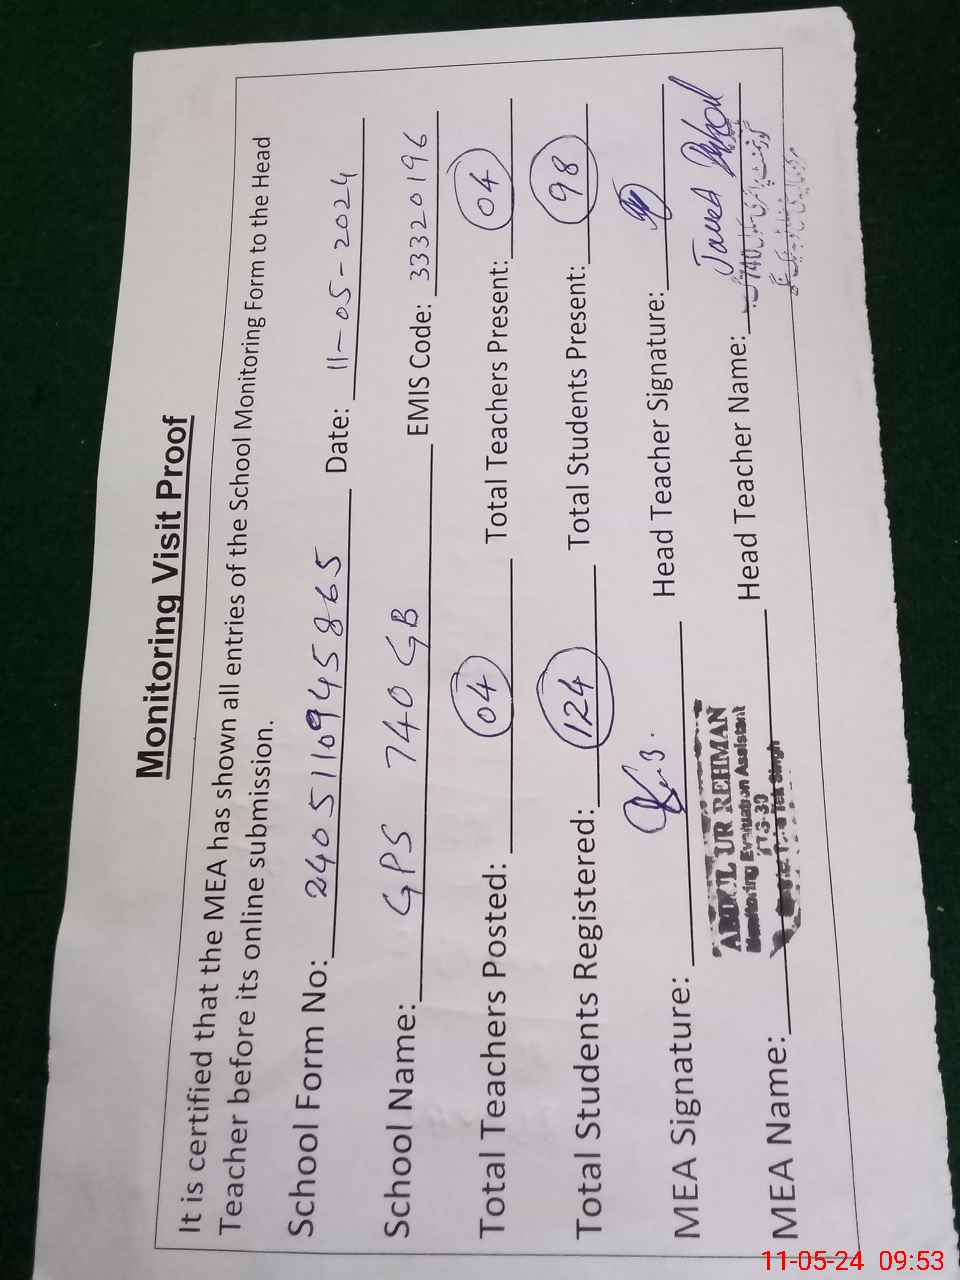 Monitoring Visit Proof
It is certified that the MEA has shown all entries of the School Monitoring Form to the Head
Teacher before its online submission.
School Form No: 2405110945865 Date: 11-05-2024
School Name: GPS 740 GB EMIS Code: 33320196
Total Teachers Posted: 04 Total Teachers Present: 04
Total Students Registered: 124 Total Students Present: 98
MEA Signature: Head Teacher Signature:
ABDUL UR REHMAN
Monitoring Evaluation Assistant
MEA Name: Head Teacher Name: Javed
11-05-24 09:53